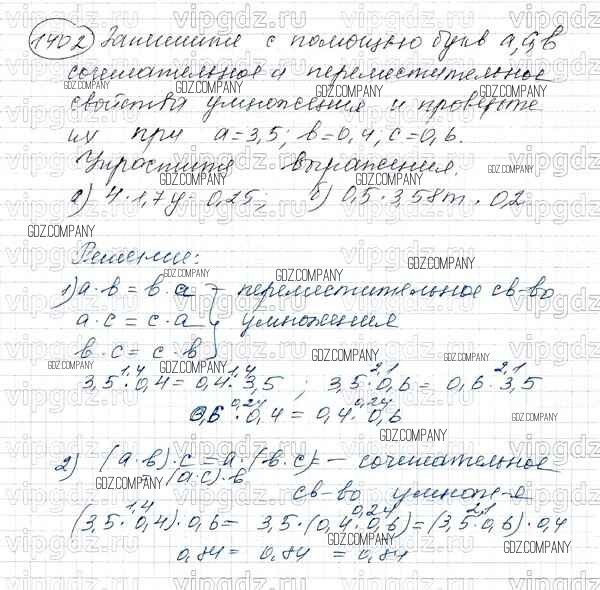 1402 Запишите с помощью букв a, b, c
сочетательное и переместительное
свойства умножения и проверьте
их при a=3,5; b=0,4; c=0,6.
Упростите выражения.
а) 4·1,7y·0,25; б) 0,5·358m·0,2
Решение:
1) a·b=b·a - переместительное св-во
a·c=c·a умножения
b·c=c·b
1,4 1,4 2,1 2,1
3,5·0,4=0,4·3,5; 3,5·0,6=0,6·3,5
0,24 0,24
0,6·0,4=0,4·0,6
2) (a·b)·c=a·(b·c)= - сочетательное
=(a·c)·b
св-во умнож-я
1,4 0,24 2,1
(3,5·0,4)·0,6= 3,5·(0,4·0,6)=(3,5·0,6)·0,4
0,84= 0,84 =0,84
vipgdz.ru
GDZ.COMPANY